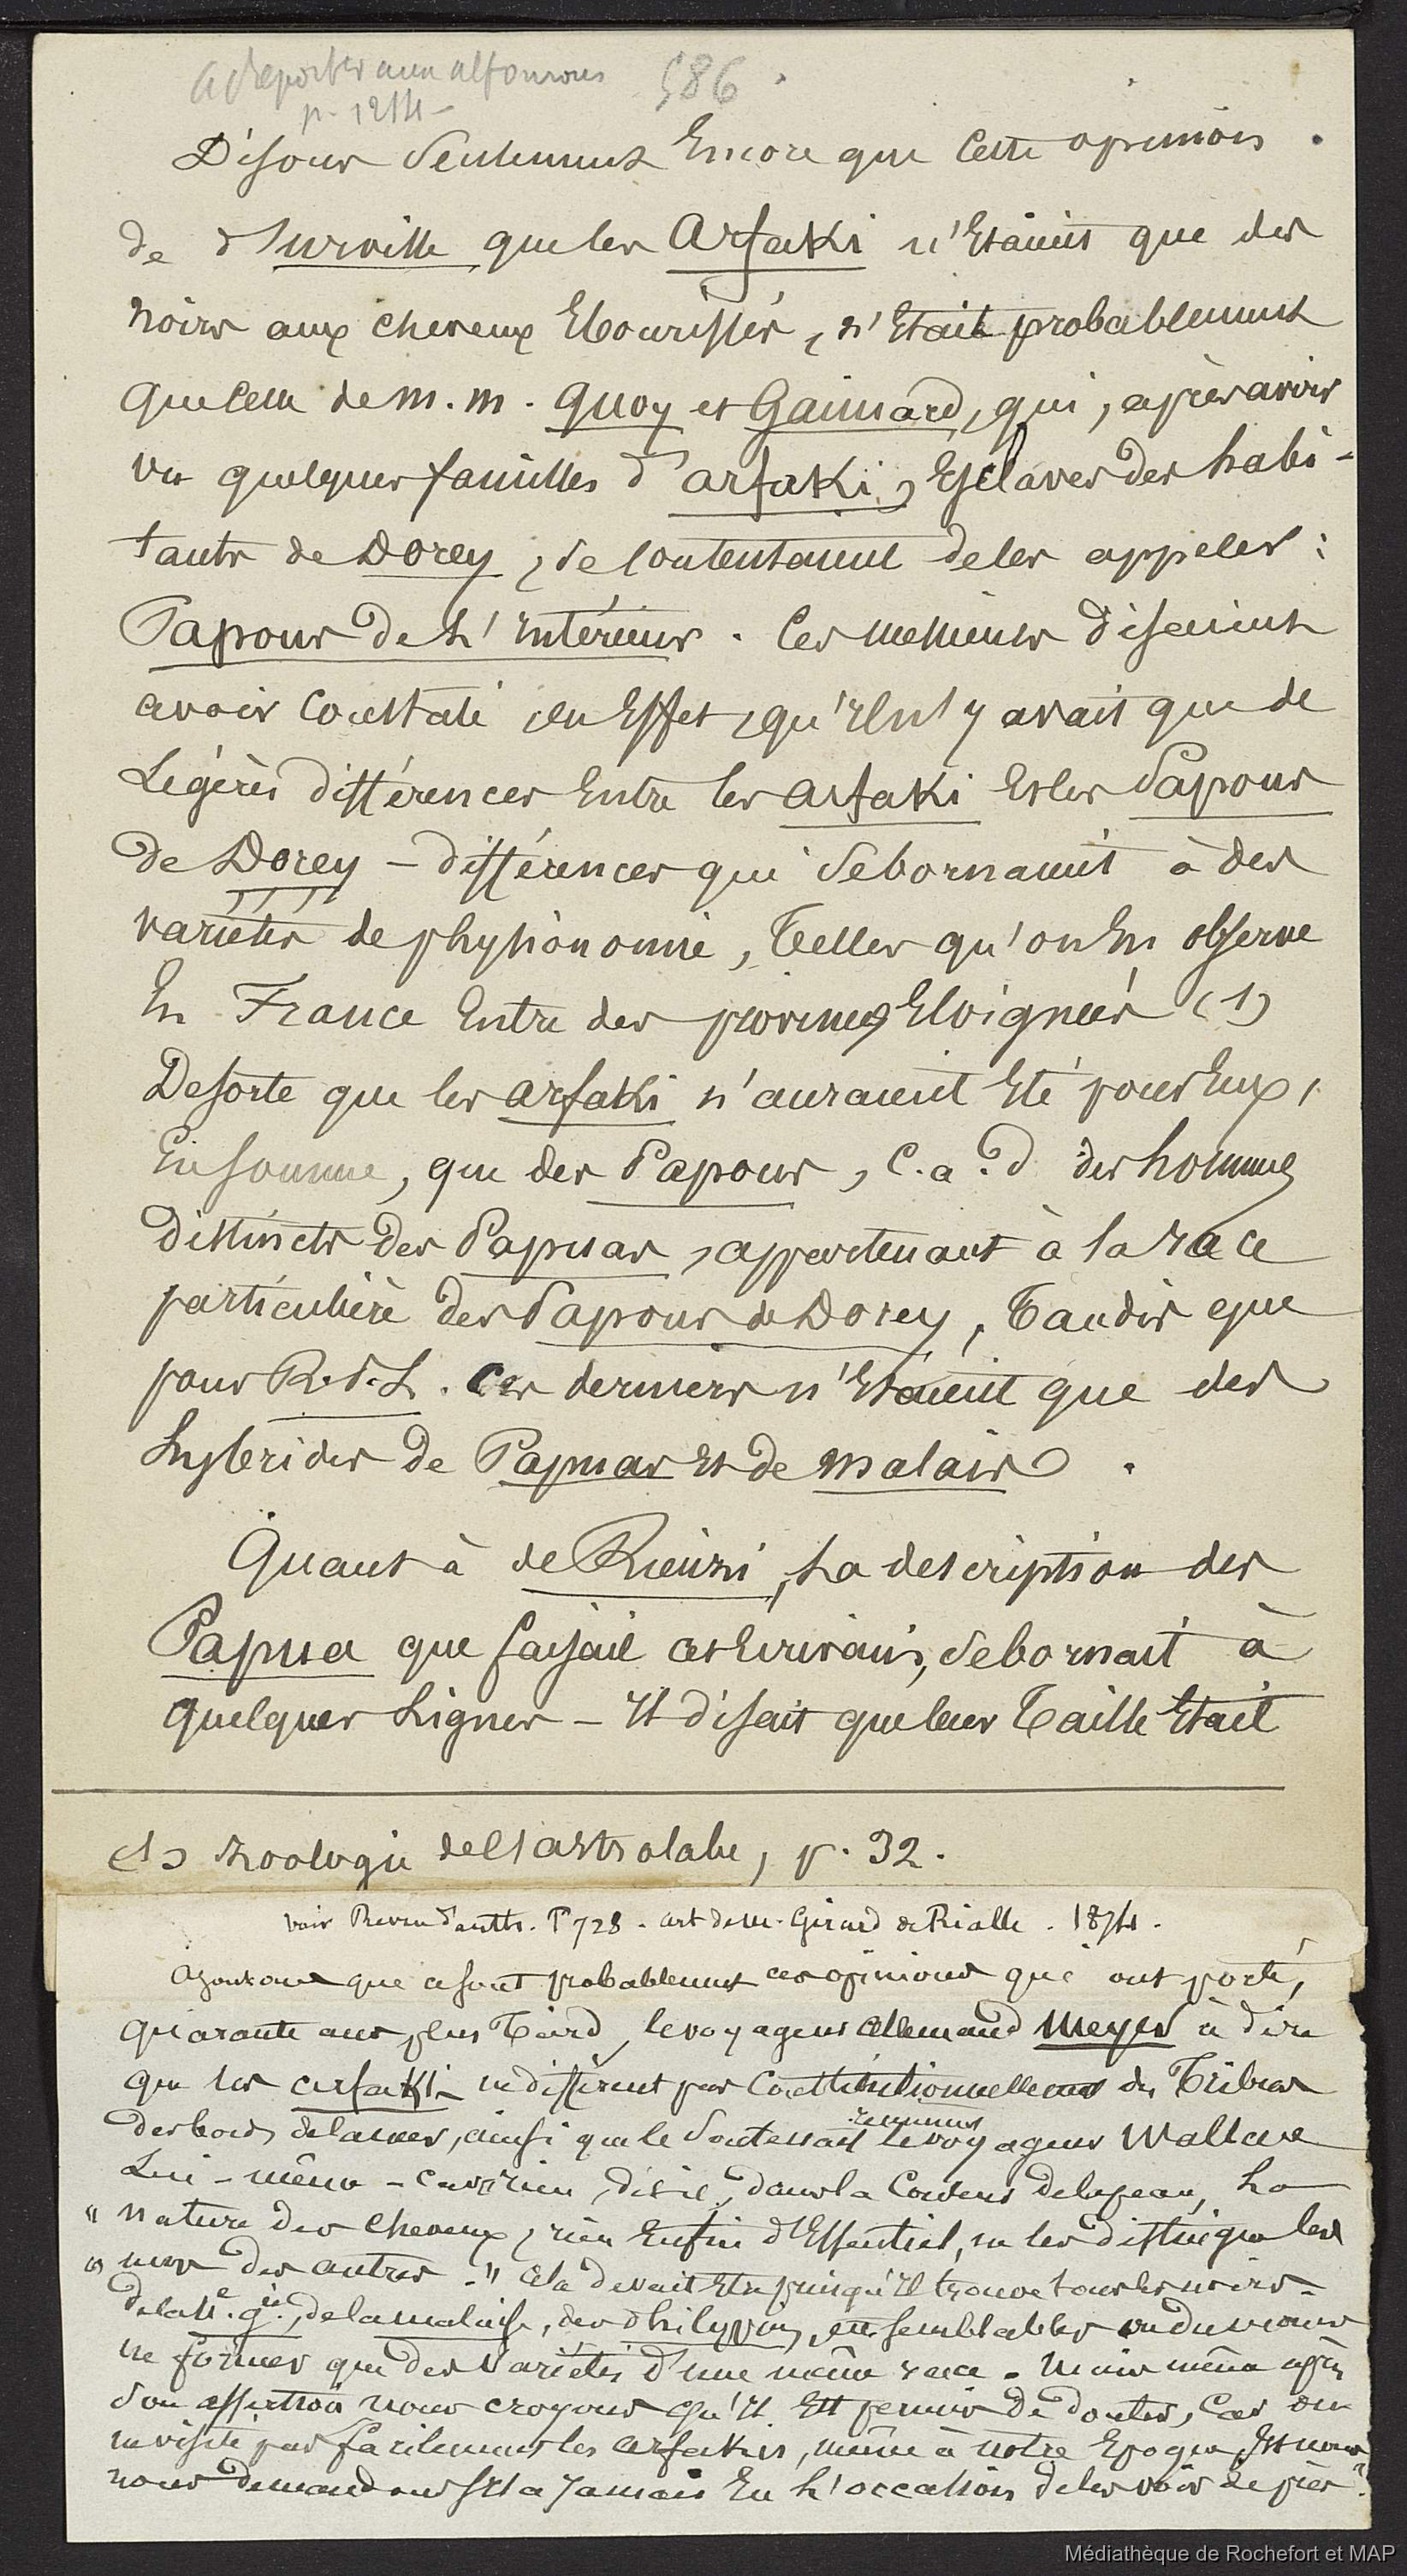 A reporter aux alfourous 586.
p. 1214 -
Disons seulement Encore que Cette opinion
de d'Urville que les Arfaki n'Etaient que des
noirs aux cheveux Ebouriffés, n'Etait probablement
que celle de m.m. Quoy et Gaimard, qui, après avoir
vu quelques familles d'arfaki, Esclaves des habi-
tants de Dorey, se Contentaient de les appeler :
Papous de L'intérieur. Ces messieurs disaient
avoir Constaté, en Effet, qu'il n'y avait que de
Légères différences Entre les arfaki Et les Papous
de Dorey - différences qui se bornaient à des
variétés de physionomie, Telles qu'on En observe
En France Entre des provinces Eloignées (1)
De sorte que les arfaki n'auraient Eté pour Eux,
En somme, que des Papous, C. a. d des hommes
distincts des Papuas, appartenant à la race
particulière des Papous de Dorey, Tandis que
pour R. P. L. Ces derniers n'Etaient que des
hybrides de Papuas Et de malais.
Quant à de Rienzi, La description des
Papua que faisait cet Ecrivain, se bornait à
quelques Lignes - Il disait que leur Taille Etait
(1) Zoologie de l'astrolabe, p. 32.
voir Revue d'anth. P 728. art de M. Girard de Rialle. 1874.
ajoutons que ce sont probablement ces opinions qui ont porté,
quarante ans plus Tard, le voyageur allemand Meyer à dire
que les arfaki ne diffèrent pas Constitutionnellement des Tribus
des bords de la mer, ainsi que le Soutenait récemment le voyageur Wallace
Lui-même - Car rien, dit-il, dans la Couleur de la peau, La
" nature des cheveux, rien Enfin d'Essentiel, ne les distingue les
" uns des autres." Cela devait Etre puisqu'Il trouve tous les noirs
de la N.e G.ée, de la malaisie, des philippines, semblables ou du moins
ne former que des Variétés d'une même race. Mais même après
son assertion nous croyons qu'Il Est permis de douter, Car on
ne visite pas facilement les arfakis, même à notre Epoque, Et nous
nous demandons s'Il a Jamais Eu L'occasion de les voir de près ?
Médiathèque de Rochefort et MAP